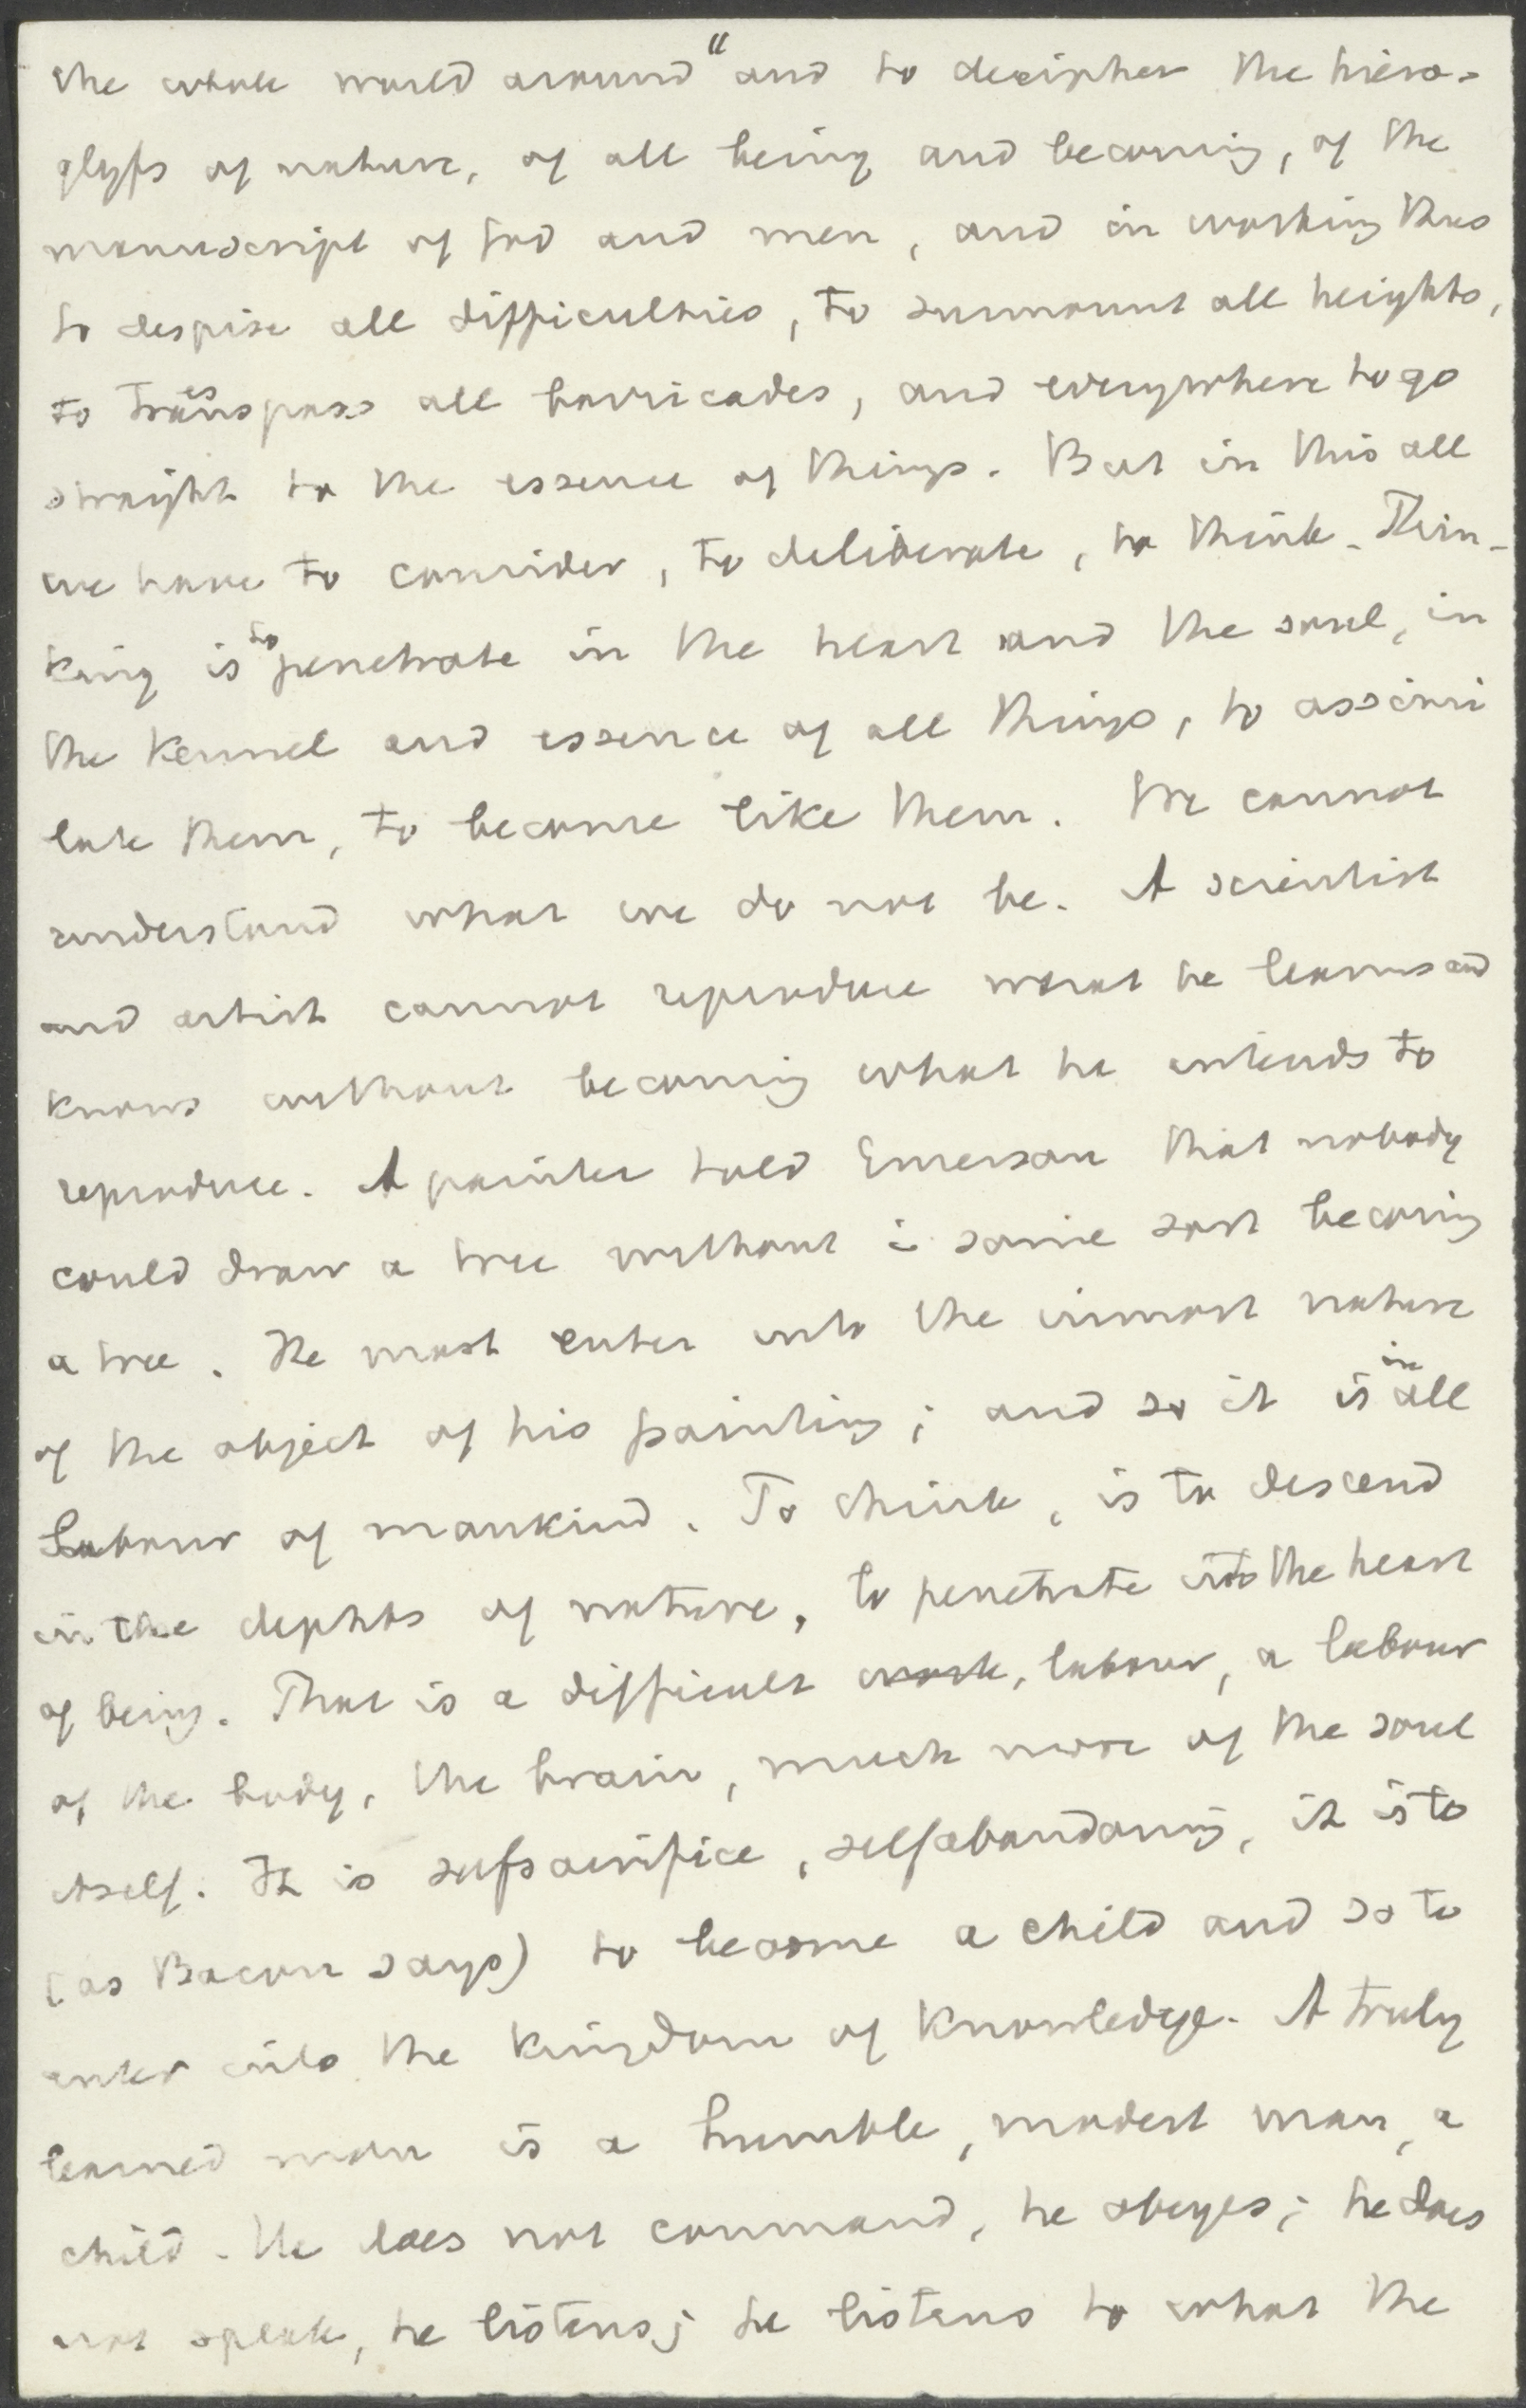 the whole world around" and to decipher the hiero-
glyfs of nature, of all being and becoming, of the
manuscript of God and men, and in working thus
to despise all difficulties, to surmount all heights,
to trespass all barricades, and everywhere to go
straight to the essence of things. But in this all
we have to consider, to deliberate, to think. Thin-
king is to penetrate in the heart and the soul, in
the kernel and essence of all things, to assimi
late them, to become like them. We cannot
understand what we do not be. A scientist
and artist cannot reproduce what he learns and
knows without becoming what he intends to
reproduce. A painter told Emerson that nobody
could draw a tree without in some sort becoming
a tree. He must enter into the inmost nature
of the object of his painting; and so it is in all
Labour of mankind. To think, is to descend
in the dephts of nature, to penetrate into the heart
of being. That is a difficult work, labour, a labour
of the body, the brain, much more of the soul
itself. It is selfsacrifice, selfabandoning, it is to
(as Bacon says) to become a child and so to
enter into the kingdom of knowledge. A truly
learned man is a humble, modest man, a
child. He does not command, he obeyes; he does
not speak, he listens; he listens to what the